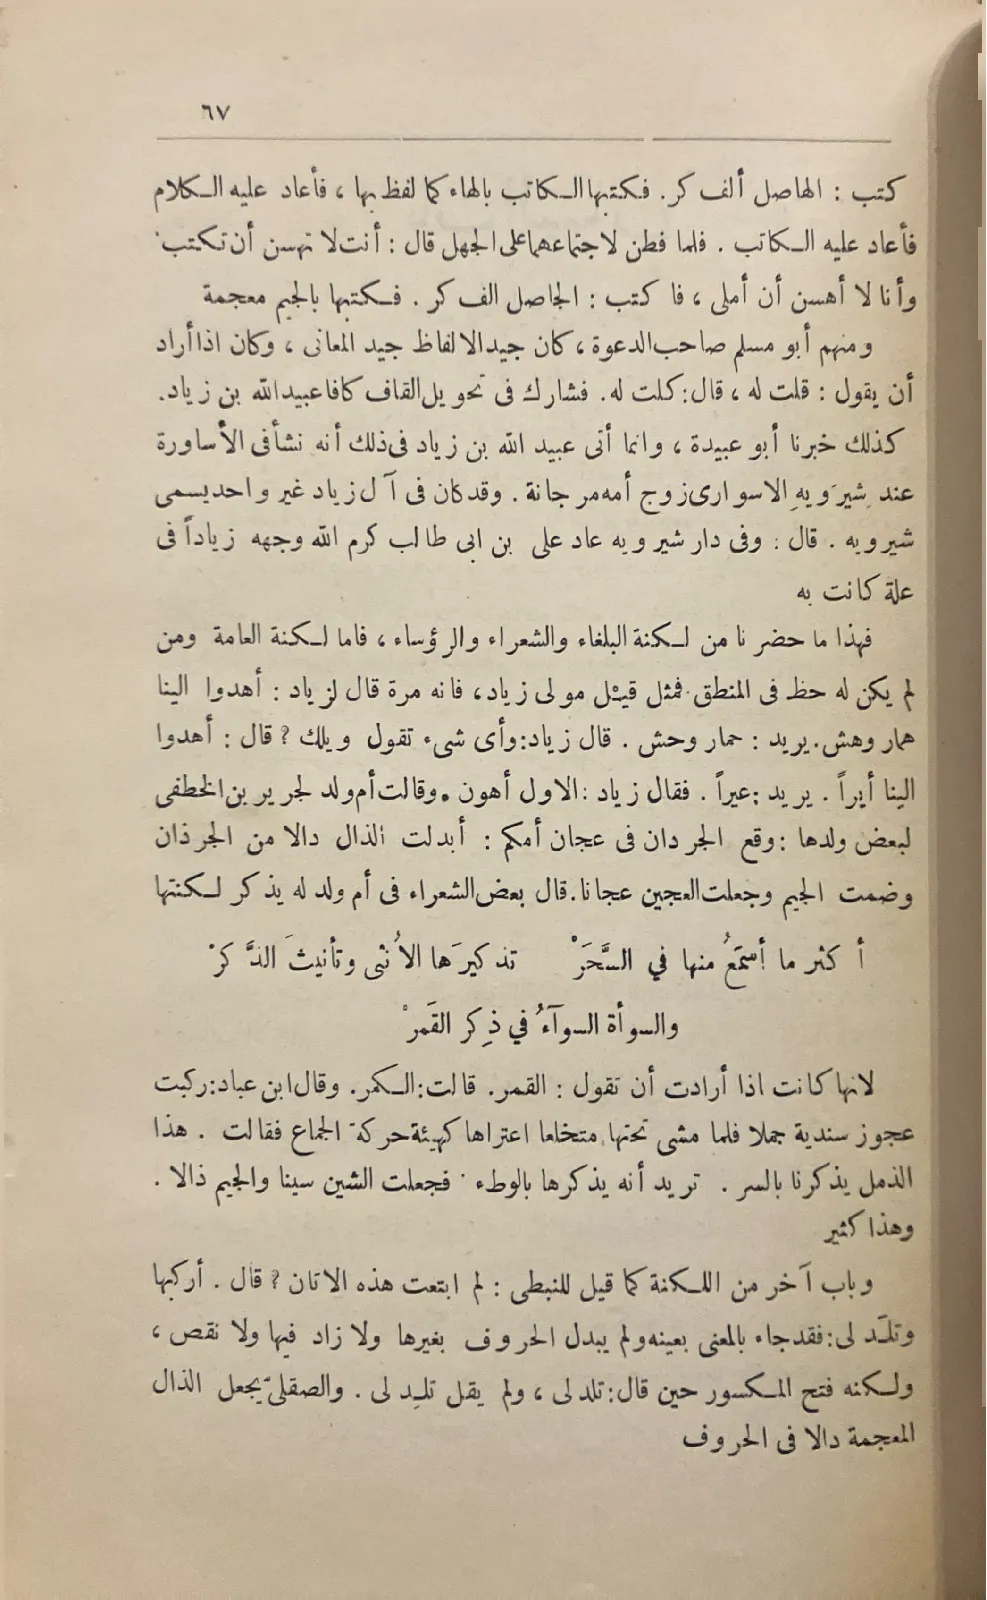 ٦٧
كتب : الهاصل ألف كر . فكتبها الكاتب بالهاء كما لفظ بها ، فأعاد عليه الكلام
فأعاد عليه الكاتب . فلما فطن لاجتماعهما على الجهل قال : أنت لا تهسن أن تكتب
وأنا لا أهسن أن أملى ، فا كتب : الجاصل الف كر . فكتبها بالجيم معجمة
ومنهم أبو مسلم صاحب الدعوة ، كان جيد الالفاظ جيد المعانى ، وكان اذا أراد
أن يقول : قلت له ، قال : كلت له . فشارك فى تحويل القاف كافا عبيد الله بن زياد .
كذلك خبرنا أبو عبيدة ، وانما أتى عبيد الله بن زياد فى ذلك أنه نشأ فى الأساورة
عند شيرَويهِ الاسوارى زوج أمه مرجانة . وقد كان فى آل زياد غير واحد يسمى
شيرويه . قال : وفى دار شيرويه عاد على بن ابى طالب كرم الله وجهه زياداً فى
علة كانت به
فهذا ما حضرنا من لكنة البلغاء والشعراء والرؤساء ، فاما لكنة العامة ومن
لم يكن له حظ فى المنطق فمثل قيل مولى زياد ، فانه مرة قال لزياد : أهدوا الينا
همار وهش . يريد : حمار وحش . قال زياد : وأى شىء تقول ويلك ? قال : أهدوا
الينا أيراً . يريد : عيراً . فقال زياد : الاول أهون . وقالت أم ولد لجرير بن الخطفى
لبعض ولدها : وقع الجردان فى عجان أمكم : أبدلت الذال دالا من الجرذان
وضمت الجيم وجعلت العجين عجانا . قال بعض الشعراء فى أم ولد له يذكر لكنتها
أكثر ما أسْمَعُ منها في السَّحَرْ تذكيرَها الأنثى وتأنيثَ الذَّكرْ
والسوأة السوآءُ في ذِكر القَمرْ
لانها كانت اذا أرادت أن تقول : القمر . قالت : الكمر . وقال ابن عباد : ركبت
عجوز سندية جملا فلما مشى تحتها متخلعا اعتراها كهيئة حركة الجماع فقالت . هذا
الذمل يذكرنا بالسر . تريد أنه يذكرها بالوطء . فجعلت الشين سينا والجيم ذالا .
وهذا كثير
وباب آخر من اللكنة كما قيل للنبطى : لم ابتعت هذه الاتان ? قال . أركبها
وتلَد لى : فقد جاء بالمعنى بعينه ولم يبدل الحروف بغيرها ولا زاد فيها ولا نقص ،
ولكنه فتح المكسور حين قال : تلد لى ، ولم يقل تلِد لى . والصقلبىّ يجعل الذال
المعجمة دالا فى الحروف